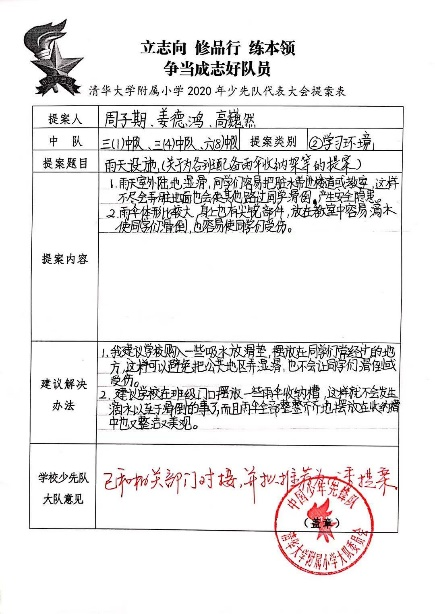 立志向 修品行 练本领
争当成志好队员
清华大学附属小学2020年少先队代表大会提案表
提案人 周子期、姜德鸿、高巍然
中队 三(1)中队、三(4)中队、六(8)中队 提案类别 ②学习环境
提案题目 雨天设施(关于为各班配备雨伞收纳架等的提案)
提案内容
1.雨天室外陆地湿滑,同学们容易把脏水带进楼道或教室,这样
不尽会弄脏地面也会使其他路过同学滑倒,产生安全隐患。
2.雨伞体形比较大,身上也有尖锐部件,放在教室中容易漏水
使同学们滑倒,也容易使同学们受伤。
建议解决办法
1.我建议学校购入一些吸水放滑垫,摆放在同学们常经过的地
方,这样可以避免把公共地区弄湿滑,也不会让同学们滑倒或
受伤。
2.建议学校在班级门口摆放一些雨伞收纳槽,这样就不会发生
漏水以至于滑倒的事了,而且雨伞全部整整齐齐地摆放在收纳槽
中也又整洁又美观。
学校少先队大队意见
已和相关部门对接,并拟推荐为 提案
(盖章)
中国少年先锋队
清华大学附属小学大队委员会